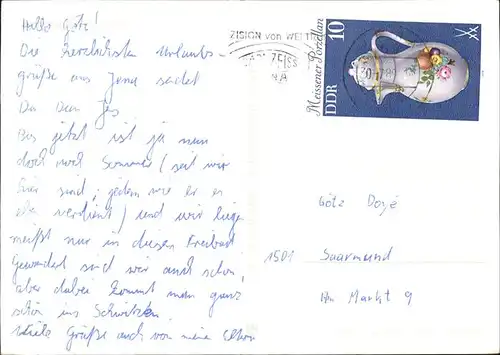 Hallo Götz!
Die herzlichsten Urlaubs-
grüße aus Jena sendet
Dir Dein Jes
Bis jetzt ist ja nun
doch noch Sommer (seit wir
hier sind; jedem wie er es
eben verdient) und wir liegen
meißt nur in diesem Freibad
Gewandert sind wir auch schon,
aber dabei kommt man ganz
schön ins Schwitzen.
Viele Grüße auch von meine Eltern
ZISION VON WELTR
Meissener Porzellan
10
DDR
Götz Doyé
1501 Saarmund
Am Markt 9